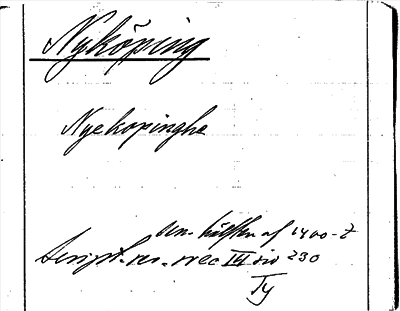 Nyköping
Nyekopinghe
sen. hälften af 1400-t
Script. rer. svec III sid 230
Ty